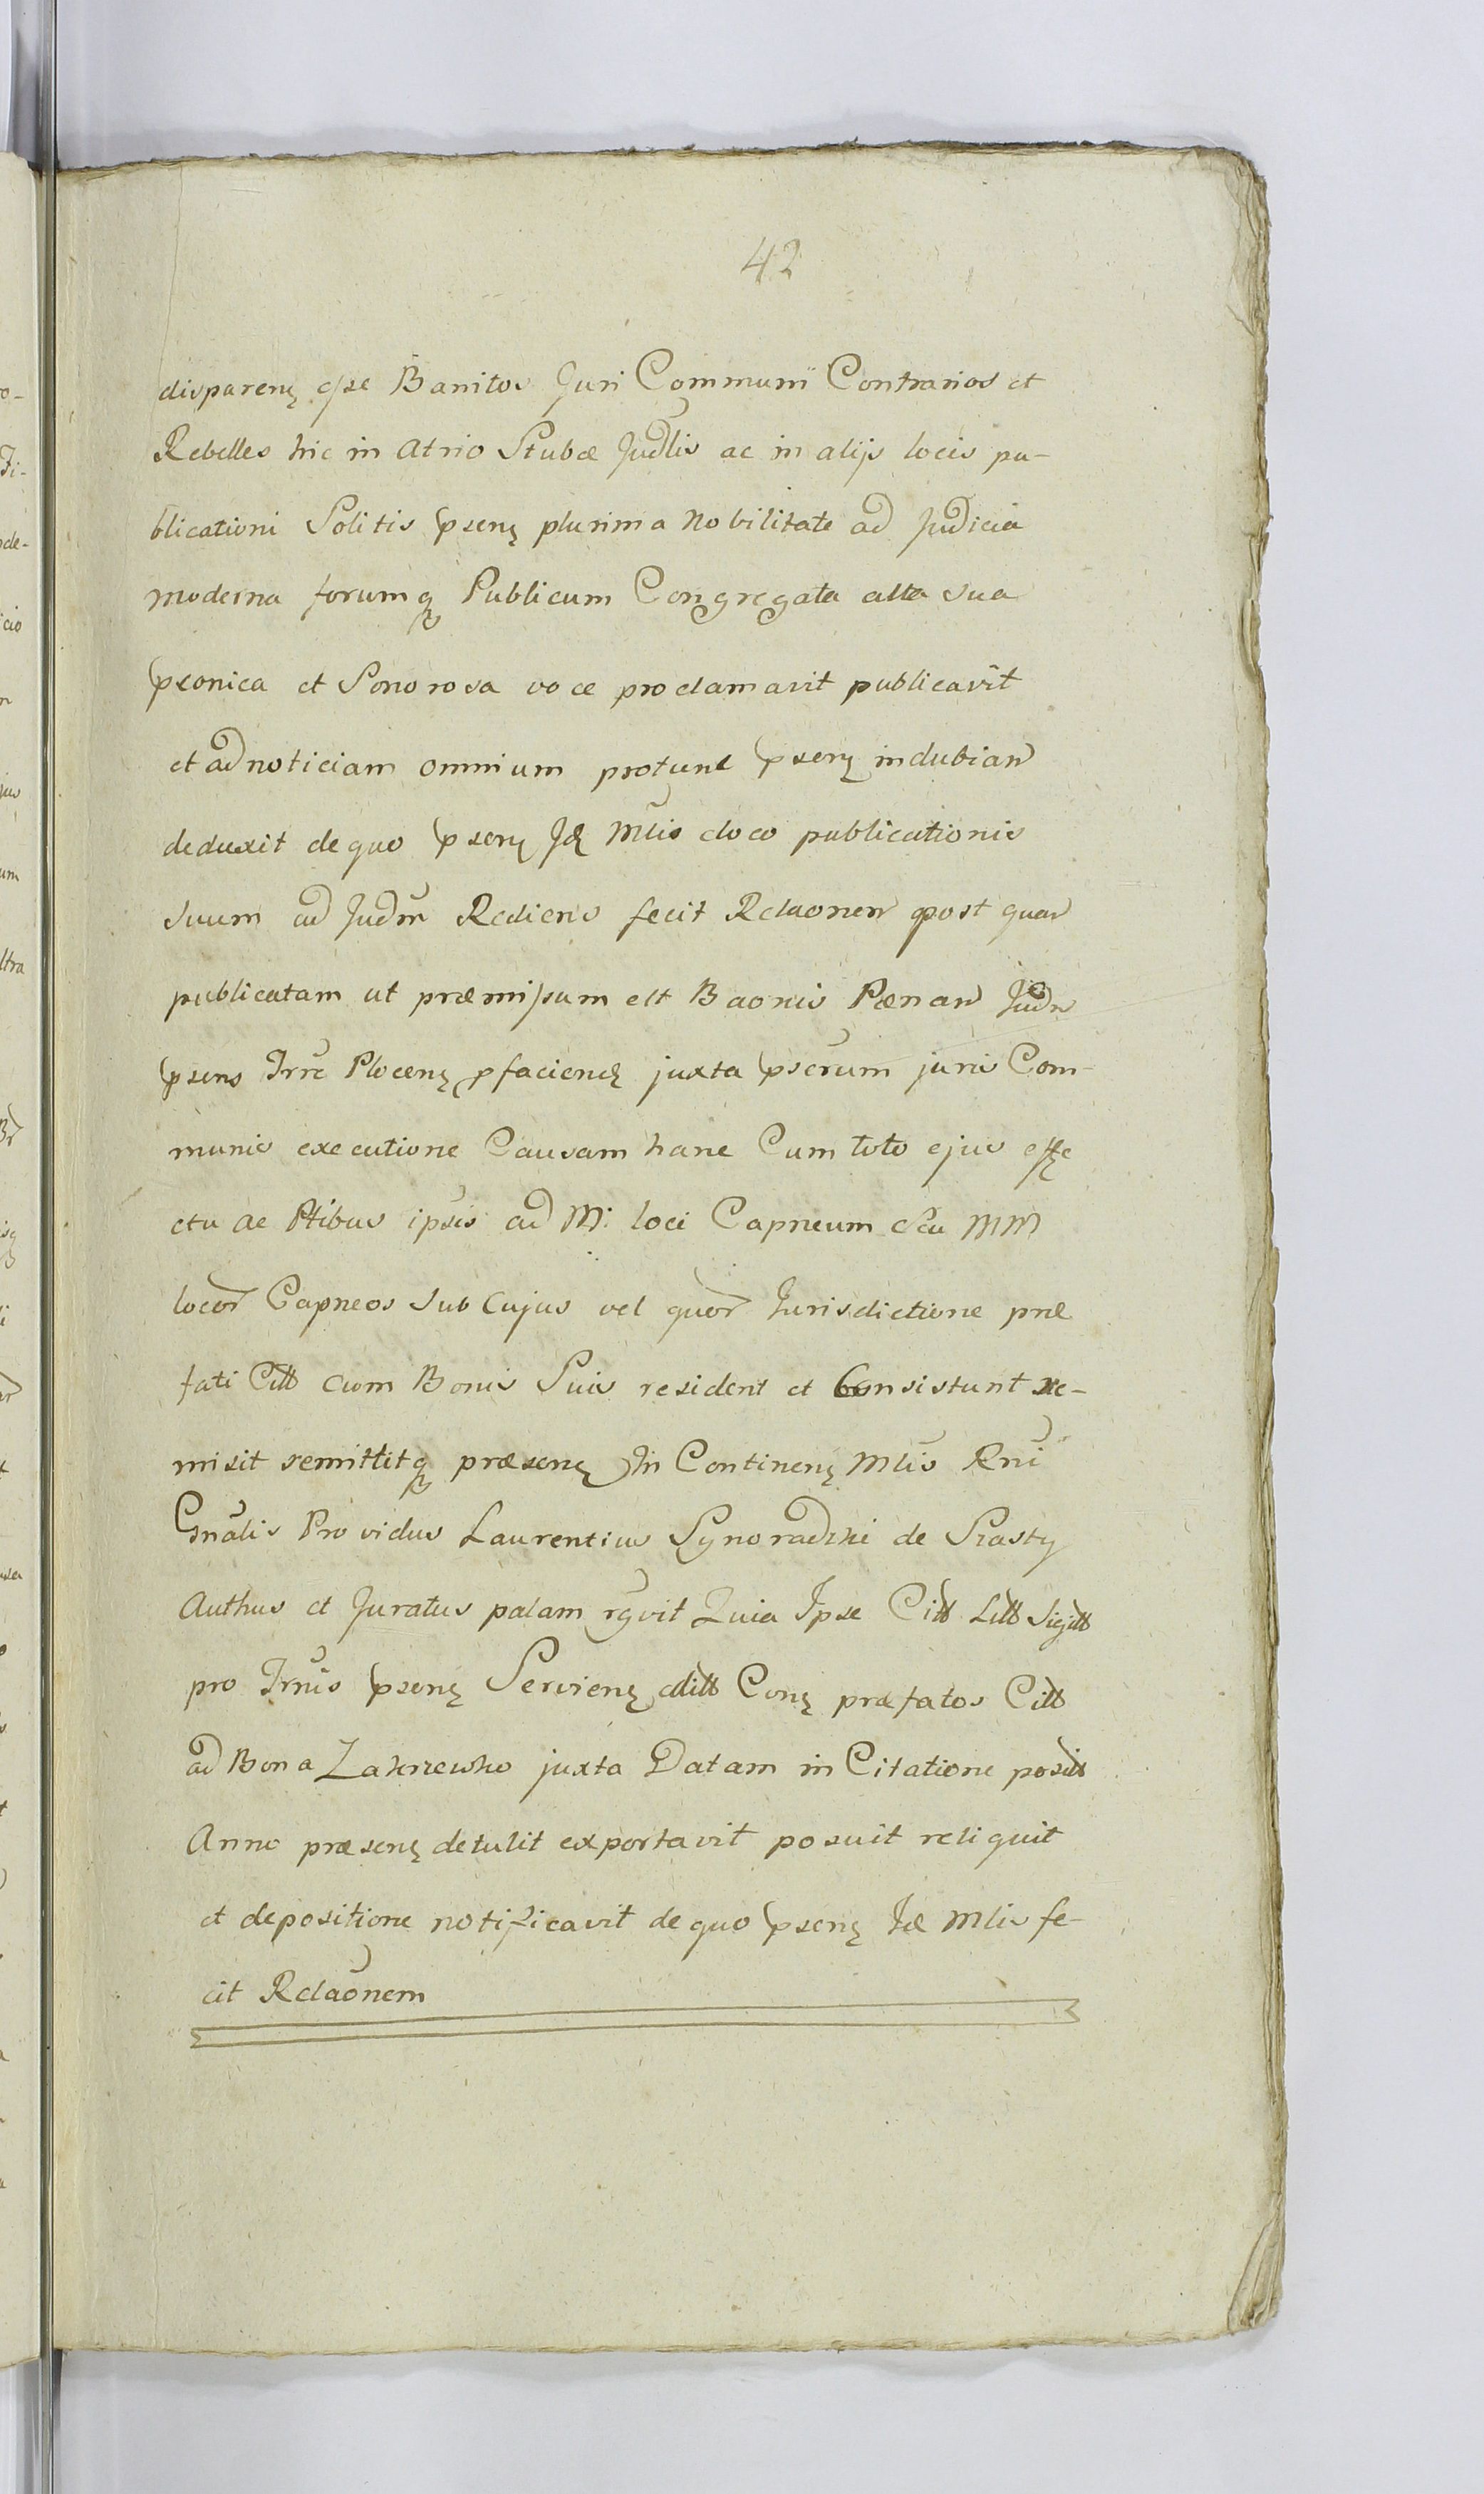 42
disparenȩ eſse Banitos Juri Communi Contrarios et
Rebelles hic in Atrio Stubæ Judlis ac in alijs locis pu-
blicationi Solitis psenȩ plurima Nobilitate ad Judicia
moderna forumqȝ Publicum Congregata alta sua
psonica et Sonorosa voce proclamavit publicavit
et ad noticiam omnium protunc psenȩ indubiam
deduxit de quo psenȩ Id Mlis eloco publicationis
suum ad Judm Rediens fecit Relaonem post quam
publicatam ut præmiſsum est Baonis Pænam Judm
psens Trre Plocenȩ pfaciend juxta pserum juris Com-
munis executione Causam hanc Cum toto ejus effe
ctu ac Ptibus ipsis ad M: loci Capneum seu MM
locor Capneos sub cujus vel quor Jurisdictione præ
fati Citt cum Bonis Suis resident et Consistunt re-
misit remittitqȝ præsenȩ In Continenȩ Mlis Rni
Gnalis Providus Laurentius Synoradzki de Szasty
Authus et Juratus palam rgvit Quia Ipse Citt Litt Sigitt
pro Trnis psenȩ Servienȩ editt Conȩ præfatos Citt
ad Bona Zakrzewko juxta Datam in Citatione positt
Anno præsenȩ detulit exportavit posuit reliquit
et depositione notificavit de quo psenȩ Id Mlis fe-
cit Relaonem